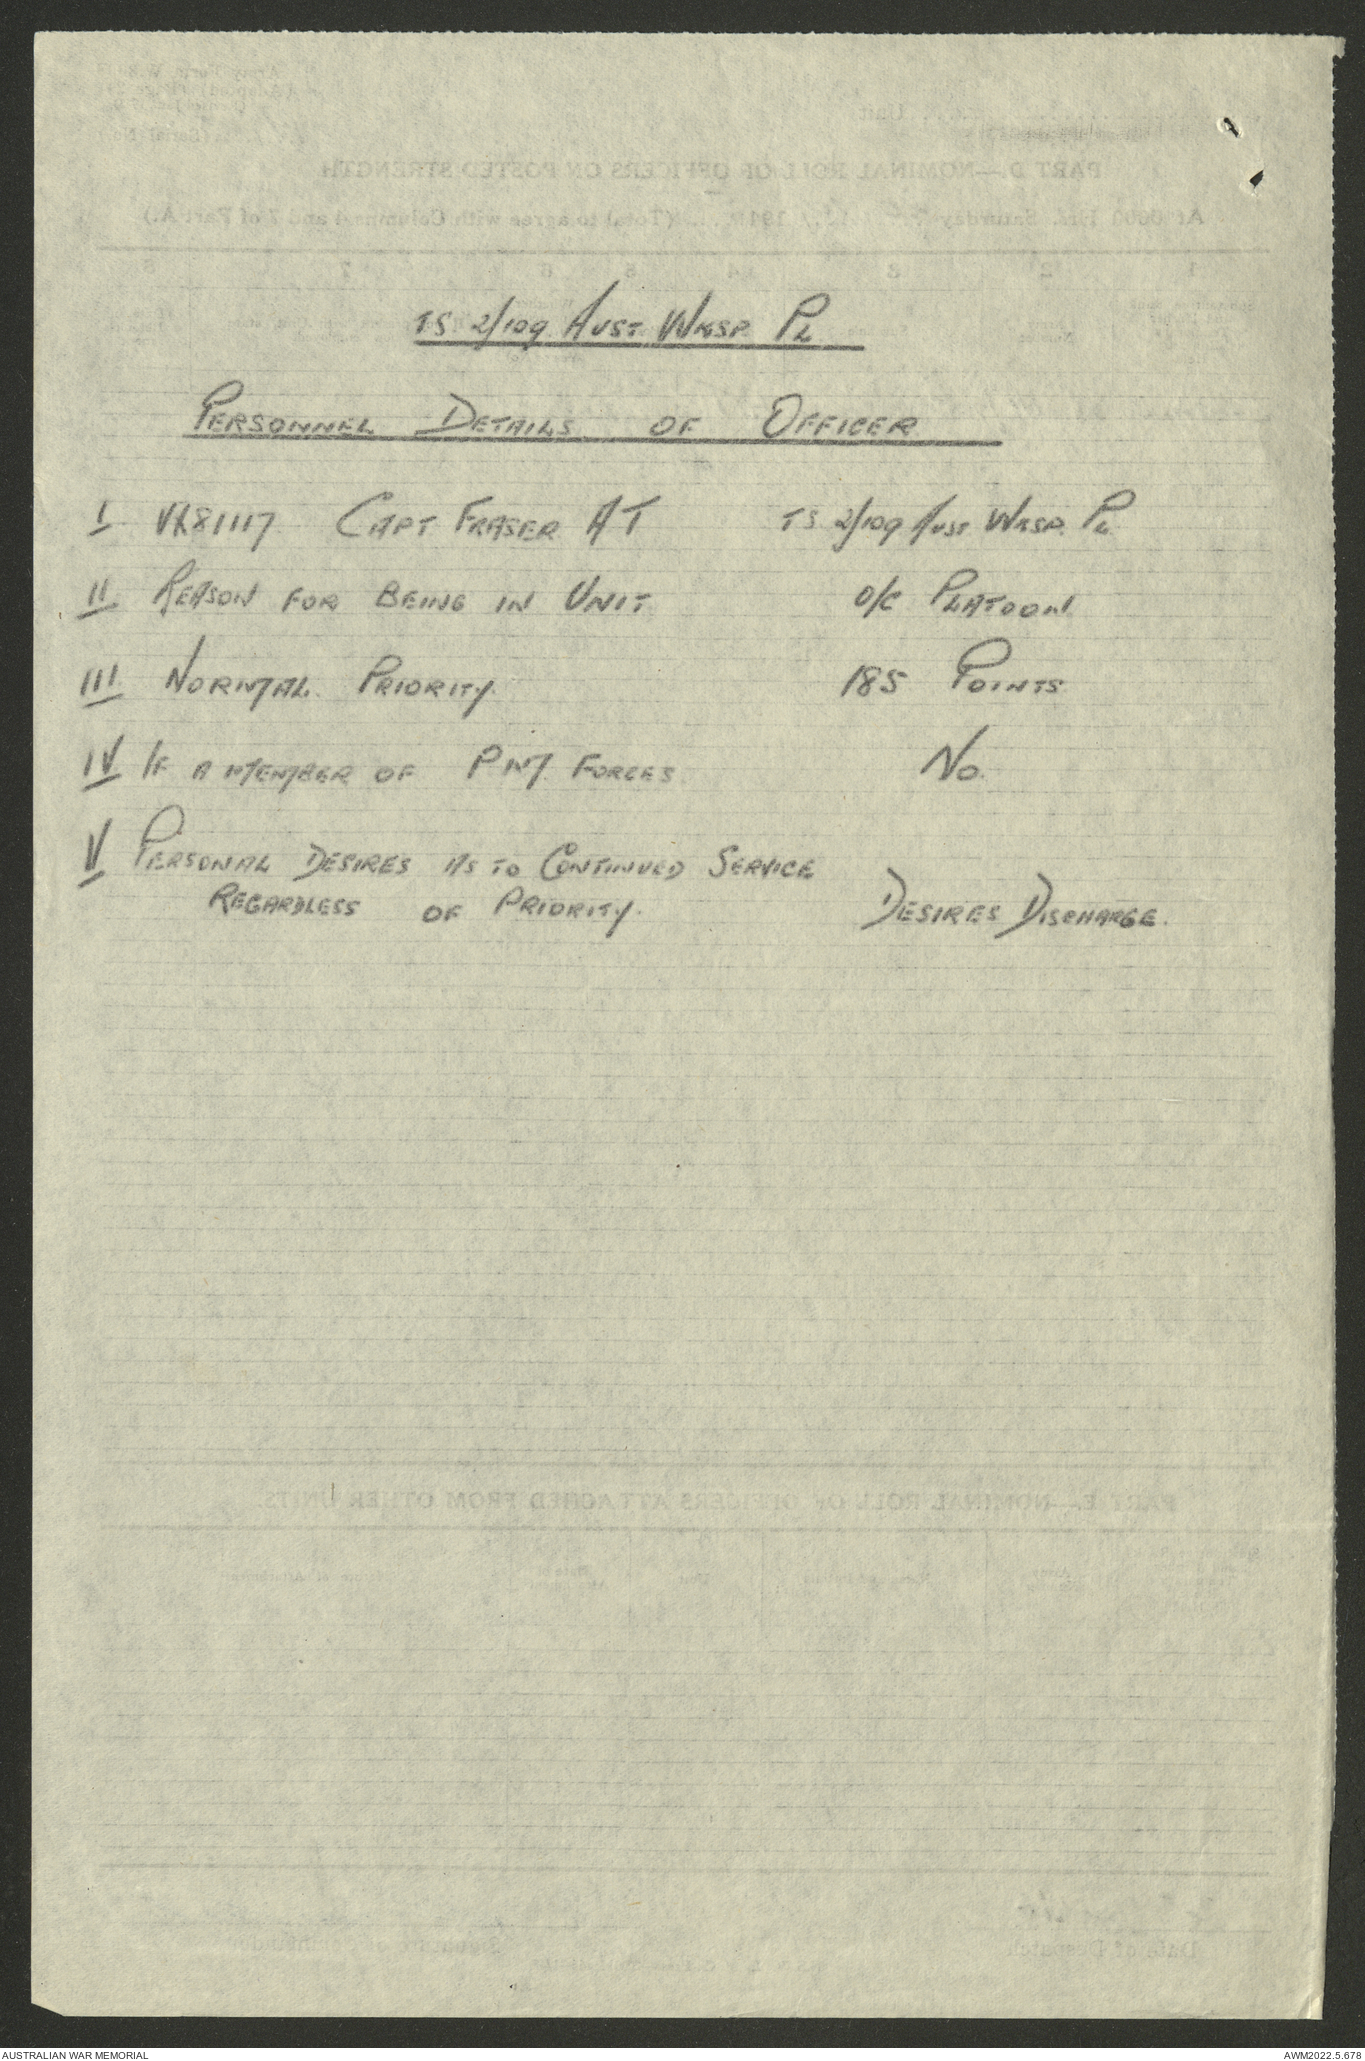 TS 2/109 AUST. WKSP. PL
PERSONNEL DETAILS OF OFFICER
I VX81117 CAPT FRASER AT TS 2/109 AUST WKSP. PL
II REASON FOR BEING IN UNIT O/C PLATOON
III NORMAL PRIORITY 185 POINTS
IV IF A MEMBER OF PM FORCES NO.
V PERSONAL DESIRES AS TO CONTINUED SERVICE
REGARDLESS OF PRIORITY. DESIRES DISCHARGE.
AUSTRALIAN WAR MEMORIAL AWM2022.5.678